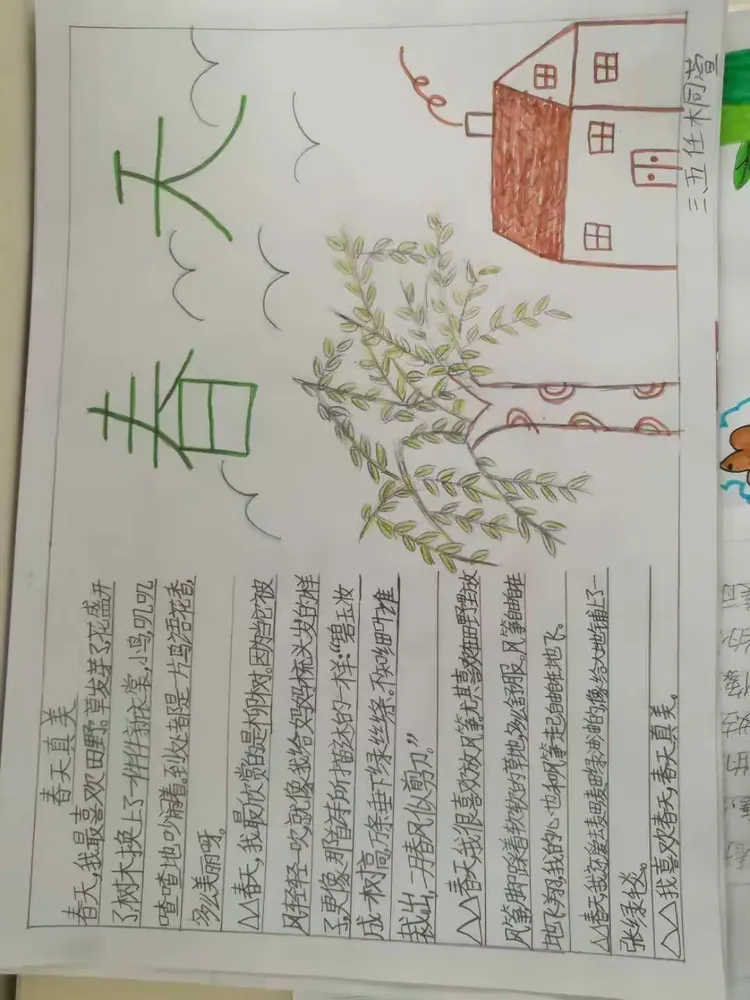 春天
三五 任桐萱
春天真美
春天,我最喜欢田野。草发芽了,花盛开
了,树木换上了一件件新衣裳,小鸟叽叽
喳喳地吵闹着。到处都是一片鸟语花香,
多么美丽呀。
△△春天,我最欣赏的是柳树。因为当它被
风轻轻一吹,就像我给妈妈梳头发的样
了,更像那首诗所描达的一样:“碧玉妆
成一树高,万条垂下绿丝绦。不知细叶谁
裁出,二月春风似剪刀。”
△△春天,我很喜欢放风筝,尤其喜欢在田野里放
风筝,脚踩着软软的草地,多么舒服。风筝自由自在
地飞翔,我的心也和风筝一起自由自在地飞。
△春天,我还爱去麦田,麦田绿油油的,像给大地铺上了一
张绿毯。
△△我喜欢春天,春天真美。